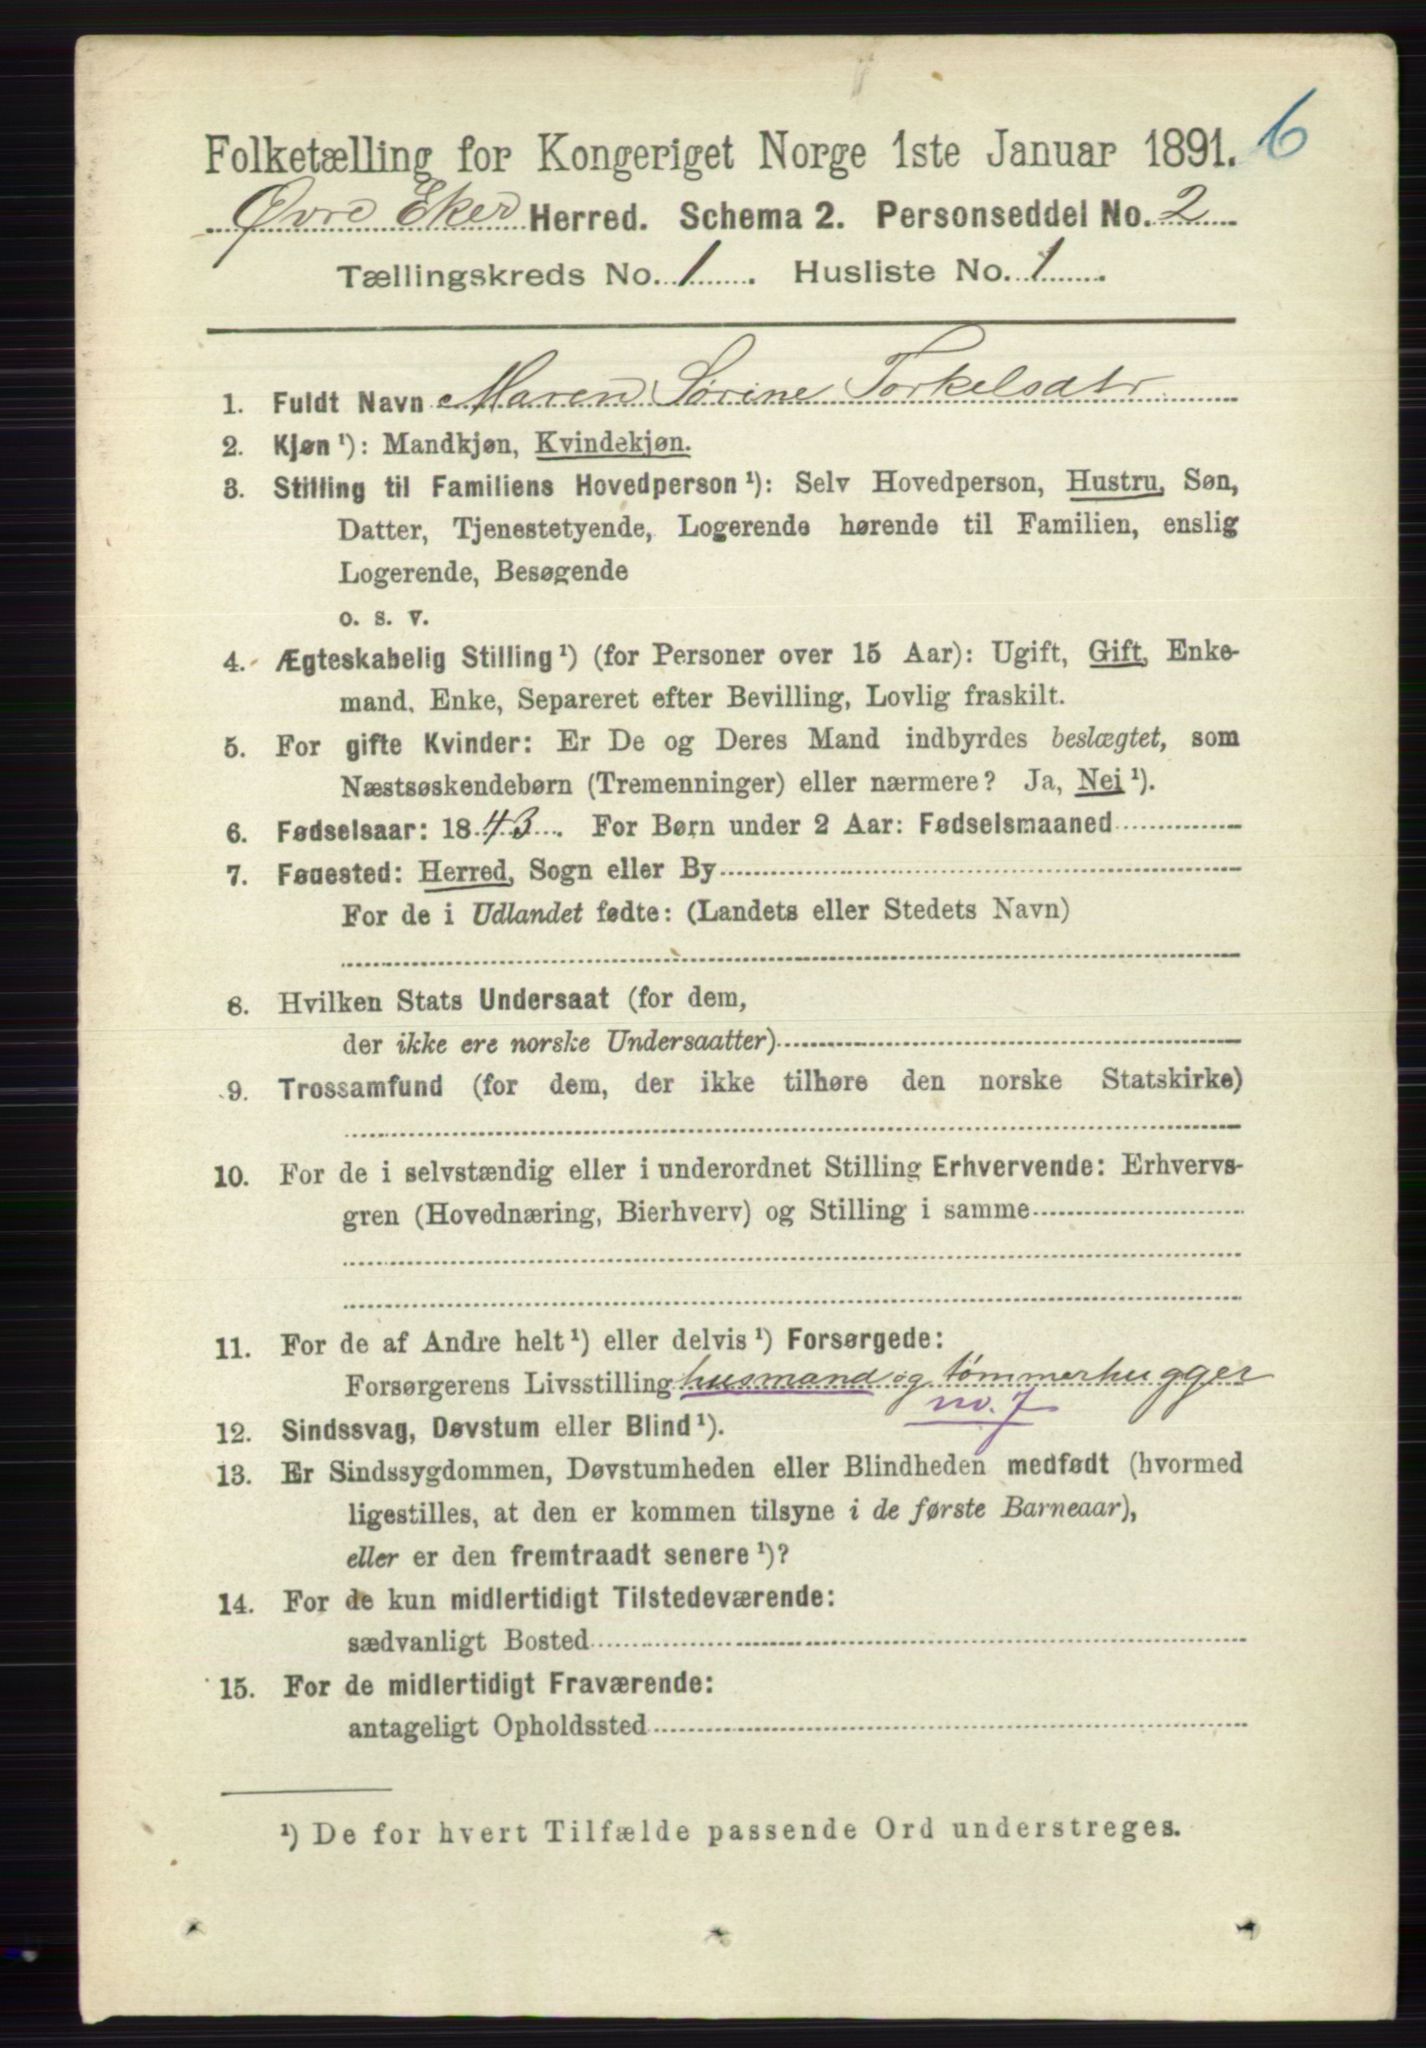 Folketælling for Kongeriget Norge 1ste Januar 1891. 6
Øvre Eker Herred. Schema 2. Personseddel No. 2
Tællingskreds No. 1. Husliste No. 1
1. Fuldt Navn Maren Sørine Torkelsdtr
2. Kjøn ¹): Mandkjøn, Kvindekjøn.
3. Stilling til Familiens Hovedperson ¹): Selv Hovedperson, Hustru, Søn,
Datter, Tjenestetyende, Logerende hørende til Familien, enslig
Logerende, Besøgende
o. s. v.
4. Ægteskabelig Stilling ¹) (for Personer over 15 Aar): Ugift, Gift, Enke-
mand, Enke, Separeret efter Bevilling, Lovlig fraskilt.
5. For gifte Kvinder: Er De og Deres Mand indbyrdes beslægtet, som
Næstsøskendebørn (Tremenninger) eller nærmere? Ja, Nei ¹).
6. Fødselsaar: 1843. For Børn under 2 Aar: Fødselsmaaned
7. Fødested: Herred, Sogn eller By
For de i Udlandet fødte: (Landets eller Stedets Navn)
8. Hvilken Stats Undersaat (for dem,
der ikke ere norske Undersaatter)
9. Trossamfund (for dem, der ikke tilhøre den norske Statskirke)
10. For de i selvstændig eller i underordnet Stilling Erhvervende: Erhvervs-
gren (Hovednæring, Bierhverv) og Stilling i samme
11. For de af Andre helt ¹) eller delvis ¹) Forsørgede:
Forsørgerens Livsstilling husmand og tømmerhugger
no. 7
12. Sindssvag, Døvstum eller Blind ¹).
13. Er Sindssygdommen, Døvstumheden eller Blindheden medfødt (hvormed
ligestilles, at den er kommen tilsyne i de første Barneaar),
eller er den fremtraadt senere ¹)?
14. For de kun midlertidigt Tilstedeværende:
sædvanligt Bosted
15. For de midlertidigt Fraværende:
antageligt Opholdssted
¹) De for hvert Tilfælde passende Ord understreges.